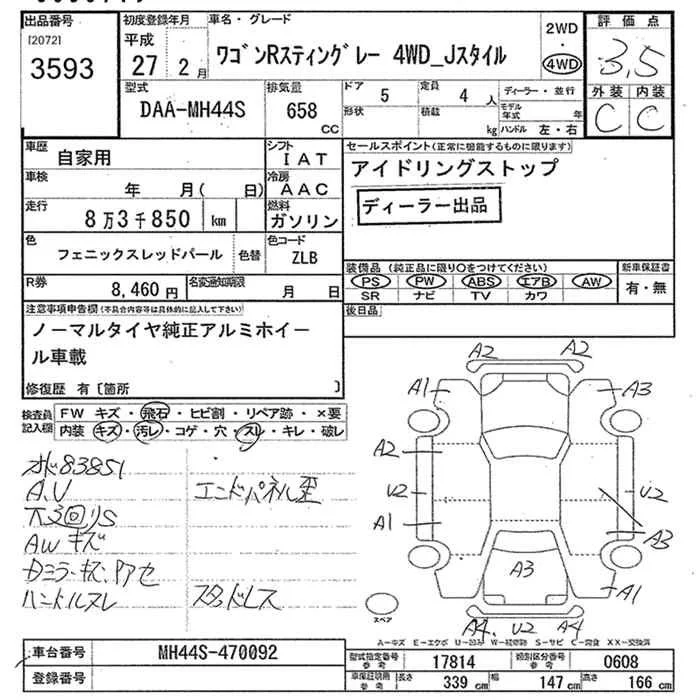 出品番号
[2072]
3593
初度登録年月
平成
27 2月
車名・グレード
ワゴンRスティングレー 4WD_Jスタイル
2WD
・
4WD
評価点
3.5
外装 内装
C C
型式
DAA-MH44S
排気量
658
CC
ドア 5
形状
定員 4 人
積載 kg
ディーラー・並行
モデル年式 年
ハンドル 左・右
車歴
自家用
シフト
IAT
車検
年 月( 日)
冷房
AAC
走行
8万3千850 km
燃料
ガソリン
色
フェニックスレッドパール
色替
色コード
ZLB
R券
8,460 円
名変通知期限
月 日
セールスポイント(正常に機能するものに限ります)
アイドリングストップ
ディーラー出品
装備品 (純正品に限り○をつけてください)
PS PW ABS エアB AW
SR ナビ TV カワ
新車保証書
有・無
後日品
注意事項申告欄(不具合内容等は具体的に記入して下さい)
ノーマルタイヤ純正アルミホイー
ル車載
修復歴 有〔箇所 〕
検査員
記入欄
FW キズ・飛石・ヒビ割・リペア跡・×要
内装 キズ・汚レ・コゲ・穴・スレ・キレ・破レ
83851
A.U
エンドパネル歪
AWキズ
Dミラーキズ
ハンドルスレ
スタッドレス
A2 A2
A1 A3
A2
U2 U2
A1 A3
A3
A1
A4 U2 A4
スペア
A-キズ E-エクボ U-凹み W-補修跡 S-サビ C-腐食 XX-交換済
車台番号
MH44S-470092
登録番号
型式指定番号
参考
17814
類別区分番号
参考
0608
車検証記載
参考
長さ 339 cm
幅 147 cm
高さ 166 cm